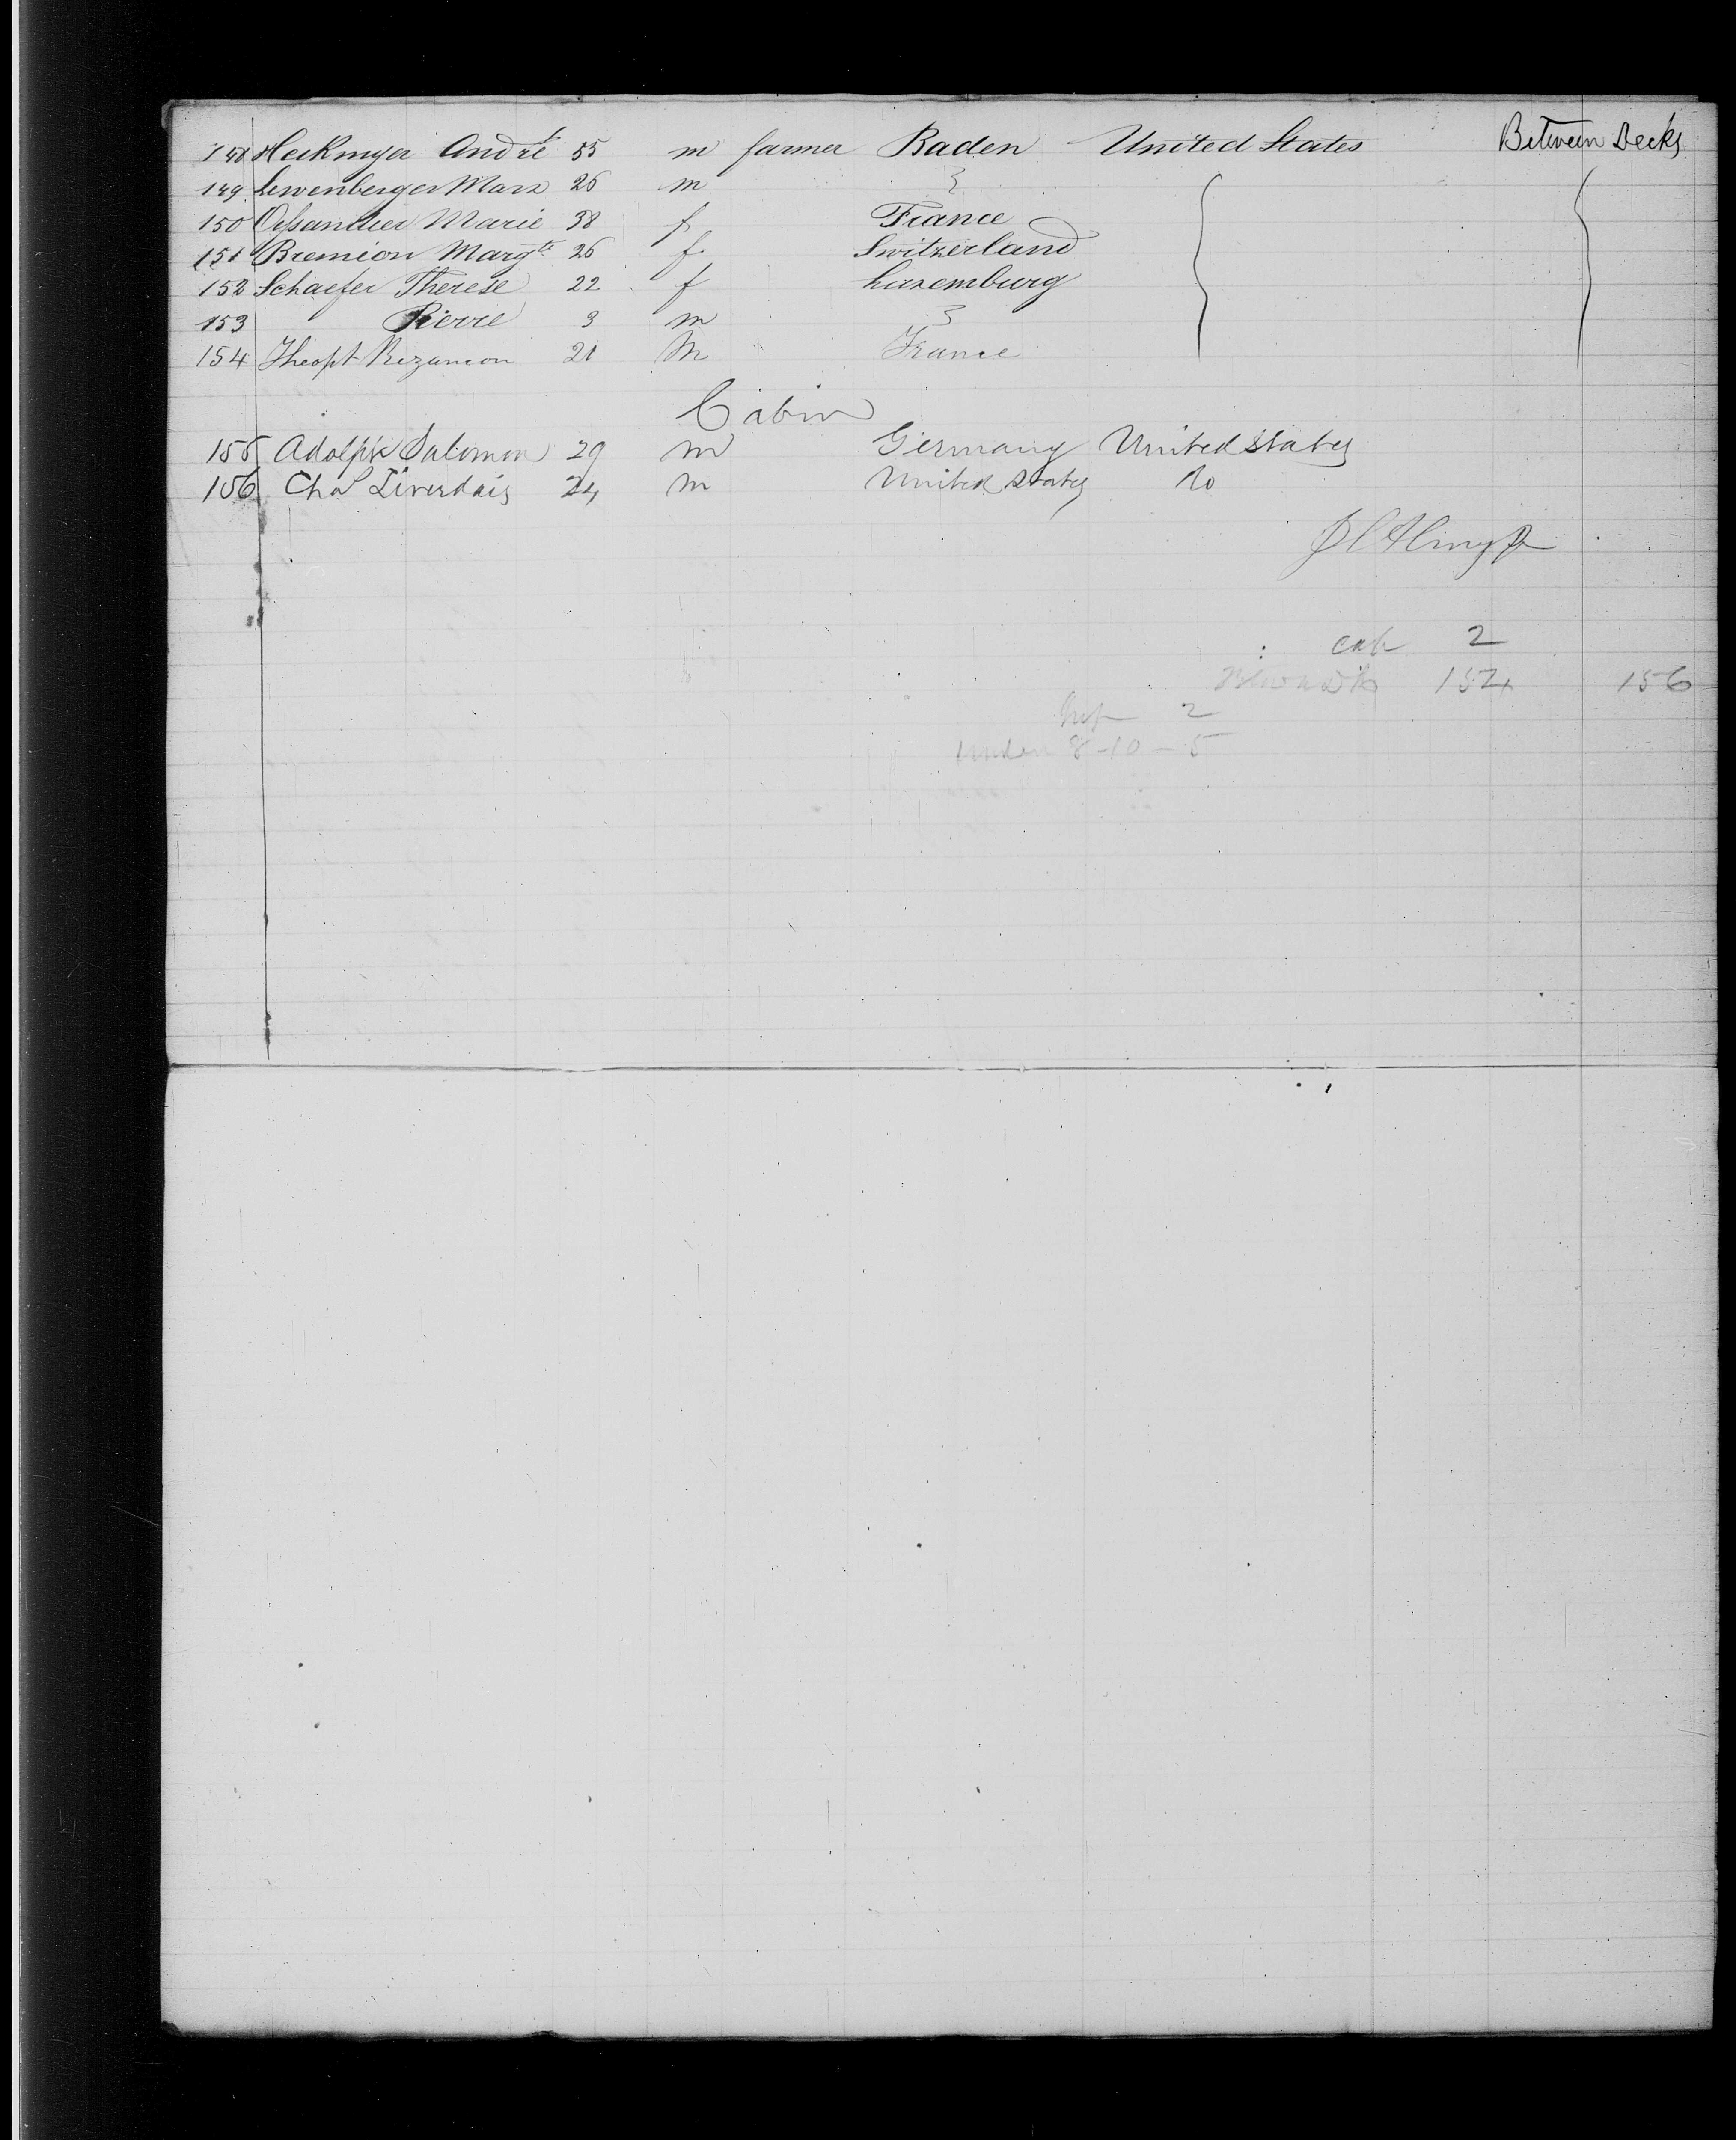 148 Heckmyer André 55 m farmer Baden United States Between Decks
149. Lewenberger Marx 26 m
150 Marie 38 f France
151 Bremion Margte 26 f Switzerland
152 Schaefer Therese 22 f Luxemburg
153 Pierre 3 m
154 Theopt Bezancon 21 M France
Cabin
155 Adolph Salomon 29 m Germany United States
156 Chas Liverdais 24 m United States Do
cab 2
154 156
Inf 2
under 8-10-5